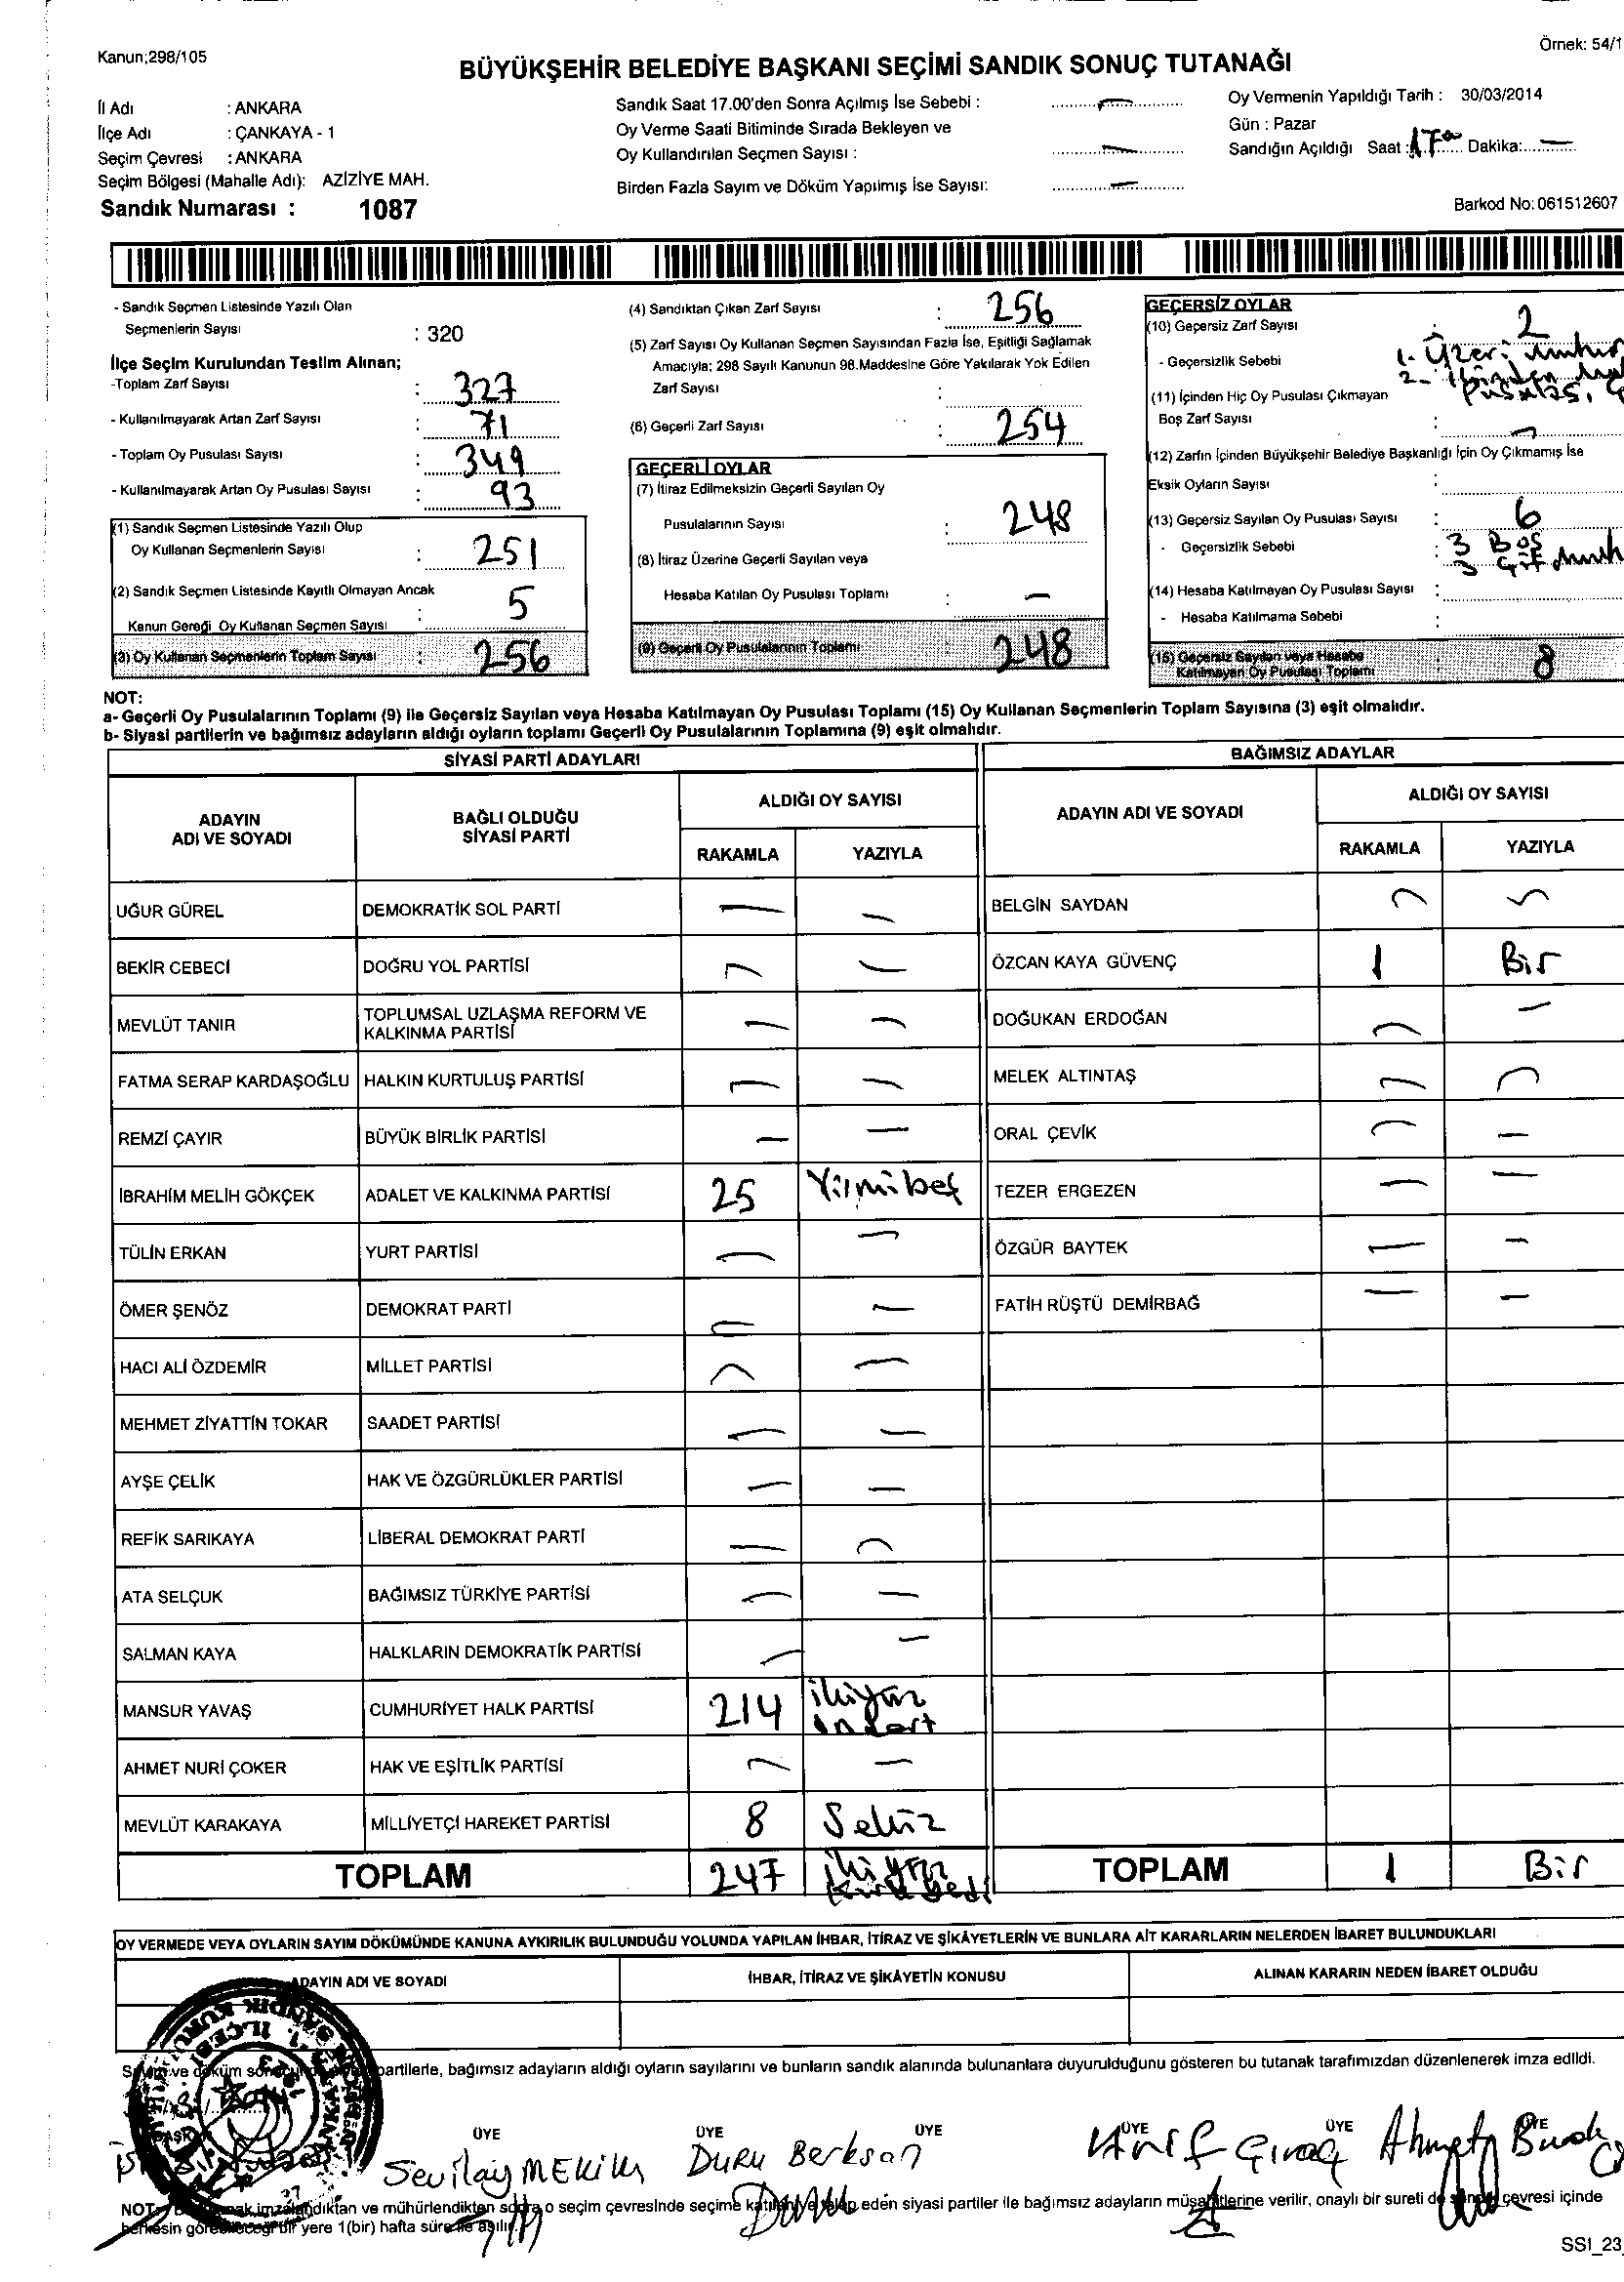 Kanun;298/105
Örnek: 54/1
BÜYÜKŞEHİR BELEDİYE BAŞKANI SEÇİMİ SANDIK SONUÇ TUTANAĞI
İl Adı : ANKARA
İlçe Adı : ÇANKAYA - 1
Seçim Çevresi : ANKARA
Seçim Bölgesi (Mahalle Adı): AZİZİYE MAH.
Sandık Numarası : 1087
Sandık Saat 17.00'den Sonra Açılmış İse Sebebi :
Oy Verme Saati Bitiminde Sırada Bekleyen ve
Oy Kullandırılan Seçmen Sayısı :
Birden Fazla Sayım ve Döküm Yapılmış İse Sayısı:
Oy Vermenin Yapıldığı Tarih : 30/03/2014
Gün : Pazar
Sandığın Açıldığı Saat : 17 Dakika: —
Barkod No: 061512607
- Sandık Seçmen Listesinde Yazılı Olan
Seçmenlerin Sayısı : 320
İlçe Seçim Kurulundan Teslim Alınan;
-Toplam Zarf Sayısı : 327
- Kullanılmayarak Artan Zarf Sayısı : 71
- Toplam Oy Pusulası Sayısı : 349
- Kullanılmayarak Artan Oy Pusulası Sayısı : 93
(1) Sandık Seçmen Listesinde Yazılı Olup
Oy Kullanan Seçmenlerin Sayısı : 251
(2) Sandık Seçmen Listesinde Kayıtlı Olmayan Ancak
Kanun Gereği Oy Kullanan Seçmen Sayısı : 5
(3) Oy Kullanan Seçmenlerin Toplam Sayısı : 256
(4) Sandıktan Çıkan Zarf Sayısı : 256
(5) Zarf Sayısı Oy Kullanan Seçmen Sayısından Fazla İse, Eşitliği Sağlamak
Amacıyla; 298 Sayılı Kanunun 98.Maddesine Göre Yakılarak Yok Edilen
Zarf Sayısı :
(6) Geçerli Zarf Sayısı : 254
GEÇERLİ OYLAR
(7) İtiraz Edilmeksizin Geçerli Sayılan Oy
Pusulalarının Sayısı : 248
(8) İtiraz Üzerine Geçerli Sayılan veya
Hesaba Katılan Oy Pusulası Toplamı : —
(9) Geçerli Oy Pusulalarının Toplamı 248
GEÇERSİZ OYLAR
(10) Geçersiz Zarf Sayısı : 2
- Geçersizlik Sebebi 1- Üzeri
2-
(11) İçinden Hiç Oy Pusulası Çıkmayan
Boş Zarf Sayısı : —
(12) Zarfın İçinden Büyükşehir Belediye Başkanlığı İçin Oy Çıkmamış İse
Eksik Oyların Sayısı :
(13) Geçersiz Sayılan Oy Pusulası Sayısı : 6
- Geçersizlik Sebebi : 3 Boş
3 Çift
(14) Hesaba Katılmayan Oy Pusulası Sayısı :
- Hesaba Katılmama Sebebi :
(15) Geçersiz Sayılan veya Hesaba
Katılmayan Oy Pusulası Toplamı : 8
NOT:
a- Geçerli Oy Pusulalarının Toplamı (9) ile Geçersiz Sayılan veya Hesaba Katılmayan Oy Pusulası Toplamı (15) Oy Kullanan Seçmenlerin Toplam Sayısına (3) eşit olmalıdır.
b- Siyasi partilerin ve bağımsız adayların aldığı oyların toplamı Geçerli Oy Pusulalarının Toplamına (9) eşit olmalıdır.
SİYASİ PARTİ ADAYLARI
ADAYIN
ADI VE SOYADI
BAĞLI OLDUĞU
SİYASİ PARTİ
ALDIĞI OY SAYISI
RAKAMLA YAZIYLA
UĞUR GÜREL DEMOKRATİK SOL PARTİ — —
BEKİR CEBECİ DOĞRU YOL PARTİSİ — —
MEVLÜT TANIR TOPLUMSAL UZLAŞMA REFORM VE
KALKINMA PARTİSİ — —
FATMA SERAP KARDAŞOĞLU HALKIN KURTULUŞ PARTİSİ — —
REMZİ ÇAYIR BÜYÜK BİRLİK PARTİSİ — —
İBRAHİM MELİH GÖKÇEK ADALET VE KALKINMA PARTİSİ 25 Yirmibeş
TÜLİN ERKAN YURT PARTİSİ — —
ÖMER ŞENÖZ DEMOKRAT PARTİ — —
HACI ALİ ÖZDEMİR MİLLET PARTİSİ — —
MEHMET ZİYATTİN TOKAR SAADET PARTİSİ — —
AYŞE ÇELİK HAK VE ÖZGÜRLÜKLER PARTİSİ — —
REFİK SARIKAYA LİBERAL DEMOKRAT PARTİ — —
ATA SELÇUK BAĞIMSIZ TÜRKİYE PARTİSİ — —
SALMAN KAYA HALKLARIN DEMOKRATİK PARTİSİ — —
MANSUR YAVAŞ CUMHURİYET HALK PARTİSİ 214 ikiyüz
ondört
AHMET NURİ ÇOKER HAK VE EŞİTLİK PARTİSİ — —
MEVLÜT KARAKAYA MİLLİYETÇİ HAREKET PARTİSİ 8 Sekiz
TOPLAM 247 ikiyüz
kırkyedi
BAĞIMSIZ ADAYLAR
ADAYIN ADI VE SOYADI
ALDIĞI OY SAYISI
RAKAMLA YAZIYLA
BELGİN SAYDAN — —
ÖZCAN KAYA GÜVENÇ 1 Bir
DOĞUKAN ERDOĞAN — —
MELEK ALTINTAŞ — —
ORAL ÇEVİK — —
TEZER ERGEZEN — —
ÖZGÜR BAYTEK — —
FATİH RÜŞTÜ DEMİRBAĞ — —
TOPLAM 1 Bir
OY VERMEDE VEYA OYLARIN SAYIM DÖKÜMÜNDE KANUNA AYKIRILIK BULUNDUĞU YOLUNDA YAPILAN İHBAR, İTİRAZ VE ŞİKÂYETLERİN VE BUNLARA AİT KARARLARIN NELERDEN İBARET BULUNDUKLARI
ADAYIN ADI VE SOYADI
İHBAR, İTİRAZ VE ŞİKÂYETİN KONUSU
ALINAN KARARIN NEDEN İBARET OLDUĞU
Sayım ve döküm partilerle, bağımsız adayların aldığı oyların sayılarını ve bunların sandık alanında bulunanlara duyurulduğunu gösteren bu tutanak tarafımızdan düzenlenerek imza edildi.
ÜYE ÜYE ÜYE ÜYE ÜYE ÜYE
Sevilay MEKİK Duru Berksan Arif Çıraç Ahmet
NOT: imzalandıktan ve mühürlendikten sonra o seçim çevresinde seçime katılan ve talep eden siyasi partiler ile bağımsız adayların müşahitlerine verilir, onaylı bir sureti de çevresi içinde
herkesin görebileceği bir yere 1(bir) hafta süre ile asılır.
SSI_23